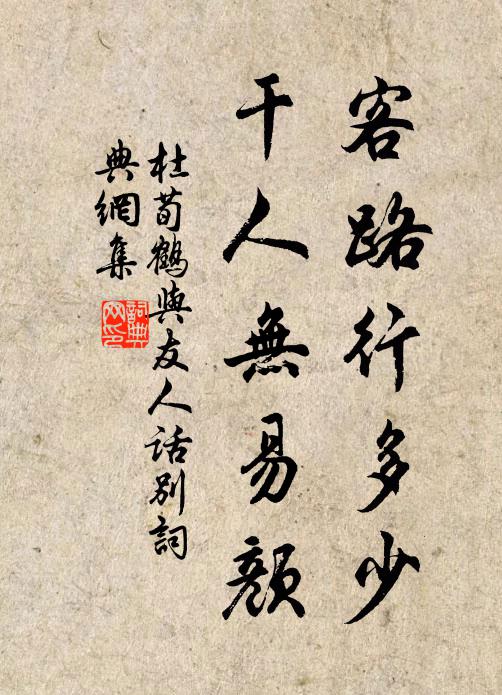 客路行多少
干人無易顔
杜荀鶴與友人话别詞
典網集
詞典网印